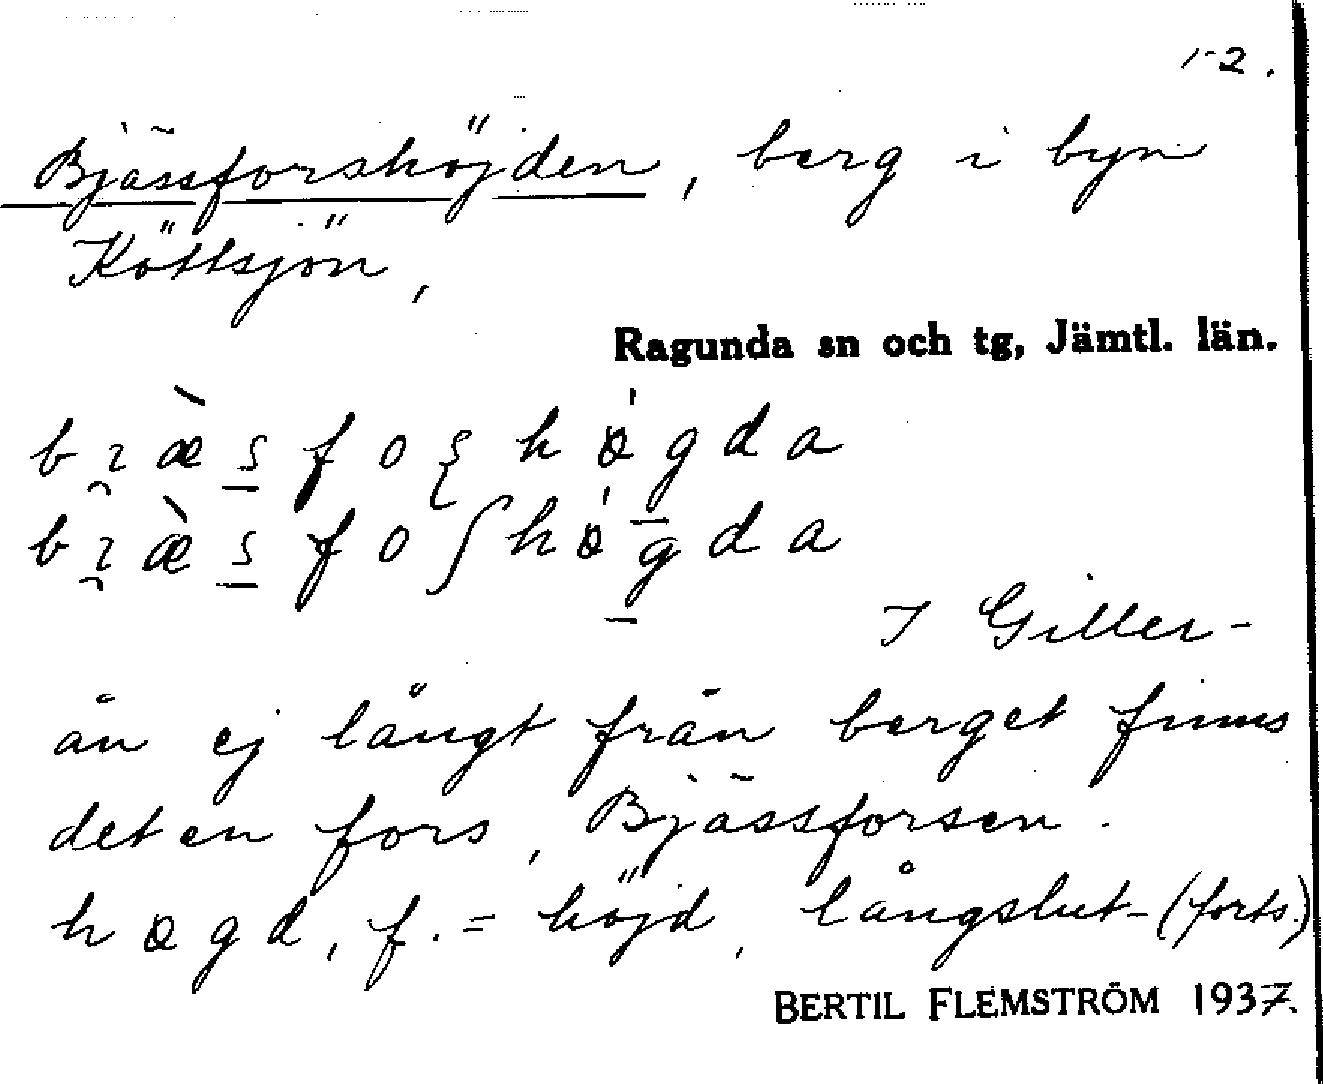 1-2.
Bjässforshöjden, berg i byn
Köttsjön,
Ragunda sn och tg, Jämtl. län.
I Giller-
ån ej långt från berget finns
det en fors, Bjässforsen.
høgd, f. = höjd, långslut- (forts.)
BERTIL FLEMSTRÖM 1937.